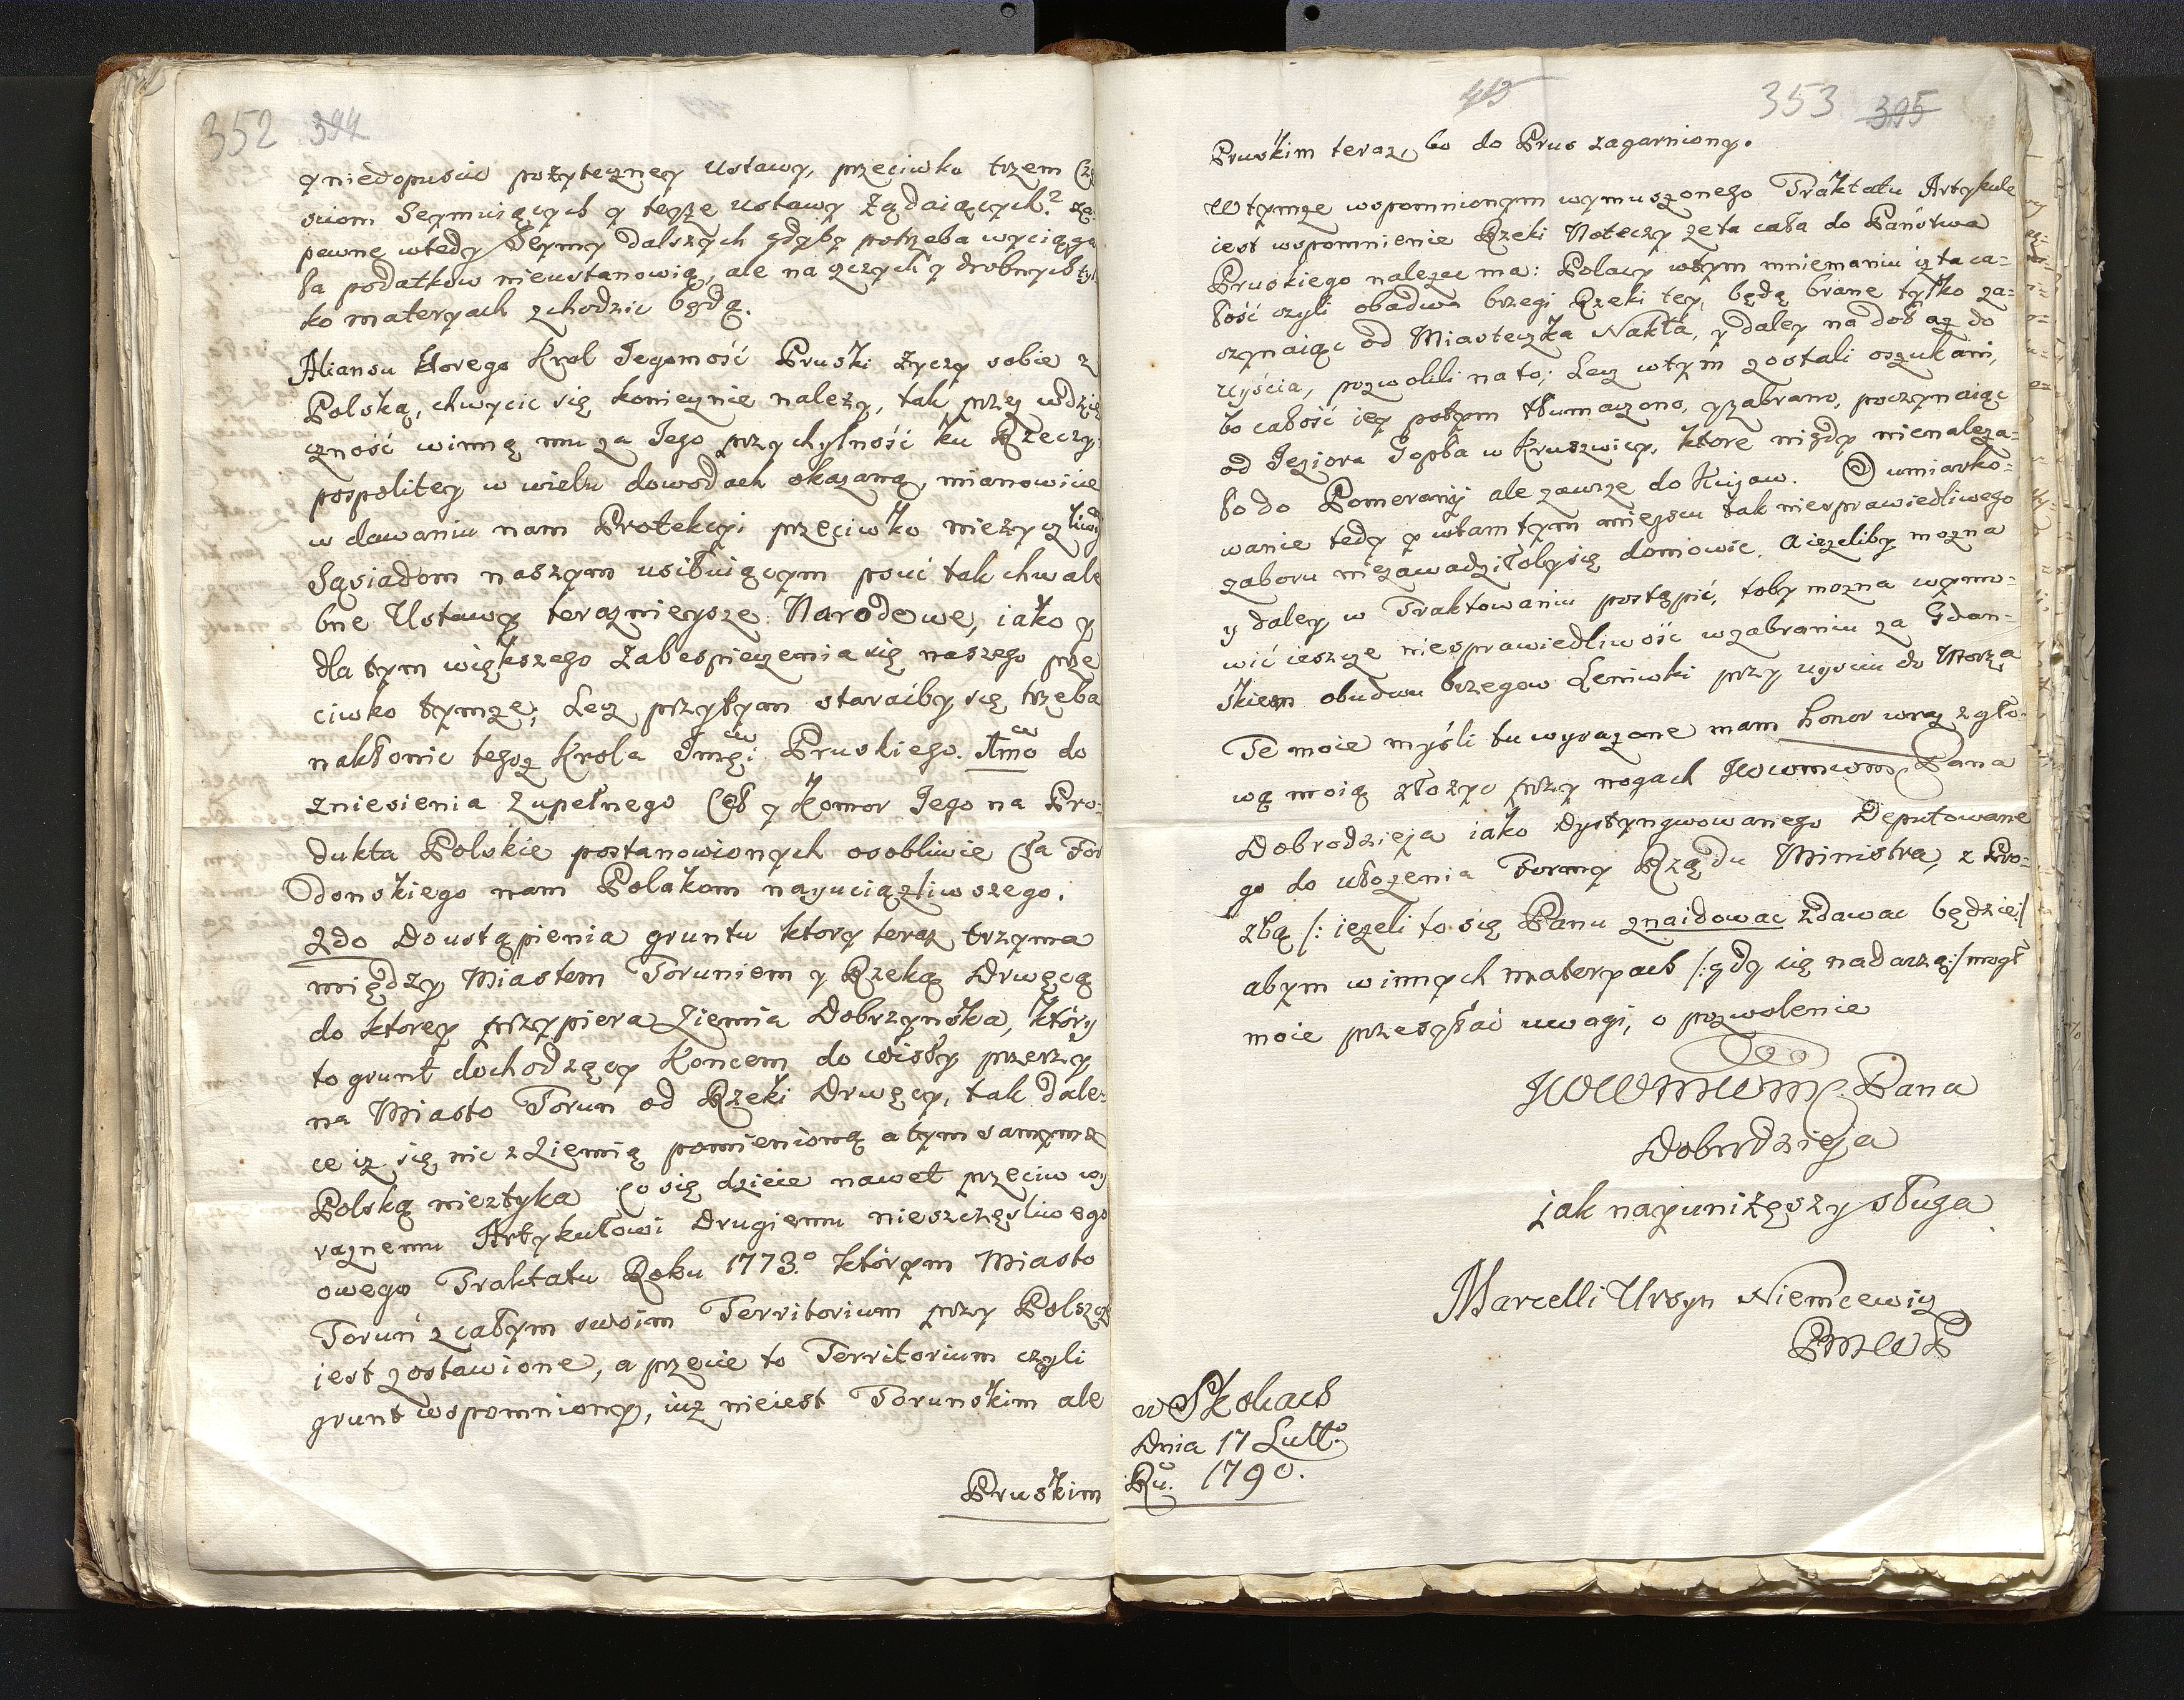 352 394
y niedopuscic pożyteczney Ustawy, przeciwko trzem Czę
sciom Seymuiących y teyże Ustawy żądaiących? za
pewne wtedy Seymy dalszych gdyby potrzeba wyciąga
ła podatkow nieustanowią, ale na czczych y drobnych tyl
ko materyach zchodzic będą.
Aliansu ktorego Krol Jegomość Pruski życzy sobie z
Polską, chwycic się koniecznie należy, tak przez wdzię
czność winną mu za Jego przychylność ku Rzeczy
pospolitey w wielu dowodach okazaną, mianowicie
w dawaniu nam Protekcyi przeciwko nieżyczliwym
Sąsiadom naszym usiłuiącym psuć tak chwale
bne Ustawy teraznieysze Narodowe, iako y
dla tym większego zabespieczenia się naszego prze
ciwko tymże; Lecz przytym staraćby się trzeba
nakłonic tegoż Krola Jmci Pruskiego. 1mo do
zniesienia zupełnego Ceł y Komor Jego na Pro=
dukta Polskie postanowionych osobliwie Cła For
donskiego nam Polakom nayuciążliwszego.
2do Do ustąpienia gruntu ktory teraz trzyma
między Miastem Toruniem y Rzeką Drwęcą
do ktorey przypiera Ziemia Dobrzynska, który
to grunt dochodzący Koncem do Wisły przerzy
na Miasto Toruń od Rzeki Drwęcy, tak dale=
ce iż się nic z Ziemią pomienioną a tym samym z
Polską nieztyka Co się dzieie nawet przeciw wy
raznemu Artykułowi Drugiemu nieszczęsliwego
owego Traktatu Roku 1773.o którym Miasto
Toruń z całym swoim Territorium przy Polszcze
jest zostawione, a przecie to Territorium czyli
grunt wspomniony, iuż nieiest Torunskim ale
Pruskim
413 353 395
Pruskim teraz, bo do Prus zagarniony.
W tymże wspomnionym wymuszonego Traktatu Artykule
iest wspomnienie Rzeki Noteczy że ta cała do Państwa
Pruskiego należec ma: Polacy w tym mniemaniu iż ta ca=
łość czyli obadwa brzegi Rzeki tey, będą brane tylko za=
czynaiąc od Miasteczka Nakła, y daley na doł aż do
uyścia, pozwolili na to; Lecz w tym zostali oszukani,
bo całość iey potym tłumaczono, y zabrano, poczynaiąc
od Jeziora Gopła w Kruszwicy, ktore nigdy nienaleza=
ło do Pomeranij ale zawsze do Kujaw. O umiarko=
wanie tedy y w tamtym mieyscu tak niesprawiedliwego
zaboru niezawadziłoby się domowic. A ieżeliby można
y daley w Traktowaniu postąpić, toby można wymo=
wić ieszcze niesprawiedliwość w zabraniu za Gdan=
skiem obudwu brzegow Leniwki przy uysciu do Morza
Te moie myśli tu wyrażone mam honor wraz z gło=
wą moią złożyc przy nogach JWWMWM Pana
Dobrodzieja iako Dystyngwowanego Deputowane
go do ułożenia Formy Rządu Ministra, z Pro=
zbą /: ieżeli to się Panu znaidowac zdawac będzie :/
abym w innych materyach /: gdy się nadarzą :/ mogł
moie przesyłać uwagi, o pozwolenie
JWWMWM Pana
Dobrodzieja
jak nayuniżeszy sługa
Marcelli Ursyn Niemcewiz
PMZWB
w Skokach
Dnia 17 Lutto
Ru. 1790.